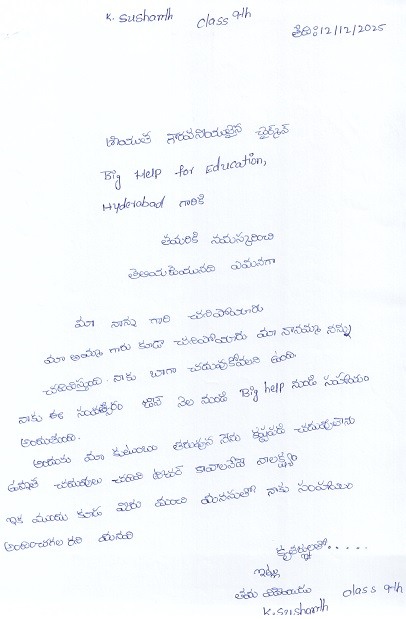 K. Sushanth class 9th
తేది: 12/12/2025
గౌరవనీయులైన చైర్మన్
Big Help for Education,
Hyderabad గారికి
తమరికి నమస్కరించి
తెలియచేయునది ఏమనగా
మా నాన్న గారు చనిపోయారు
మా అమ్మ గారు కూడా చనిపోయారు మా నానమ్మ నన్ను
చదివిస్తుంది. నాకు బాగా చదువుకోవాలని ఉంది.
నాకు ఈ సంవత్సరం జూన్ నెల నుండి Big help నుండి సహాయం
అందుతుంది.
అందుకు మా కుటుంబం తరుపున నేను కష్టపడి చదువుతాను
ఉన్నత చదువులు చదివి కావాలనేది నా లక్ష్యం
ఇక ముందు కూడా మీరు మంచి మనసుతో నాకు సహాయం
అందించగలరని మనవి
కృతజ్ఞతలతో.....
ఇట్లు
తమ class 9th
K. Sushanth